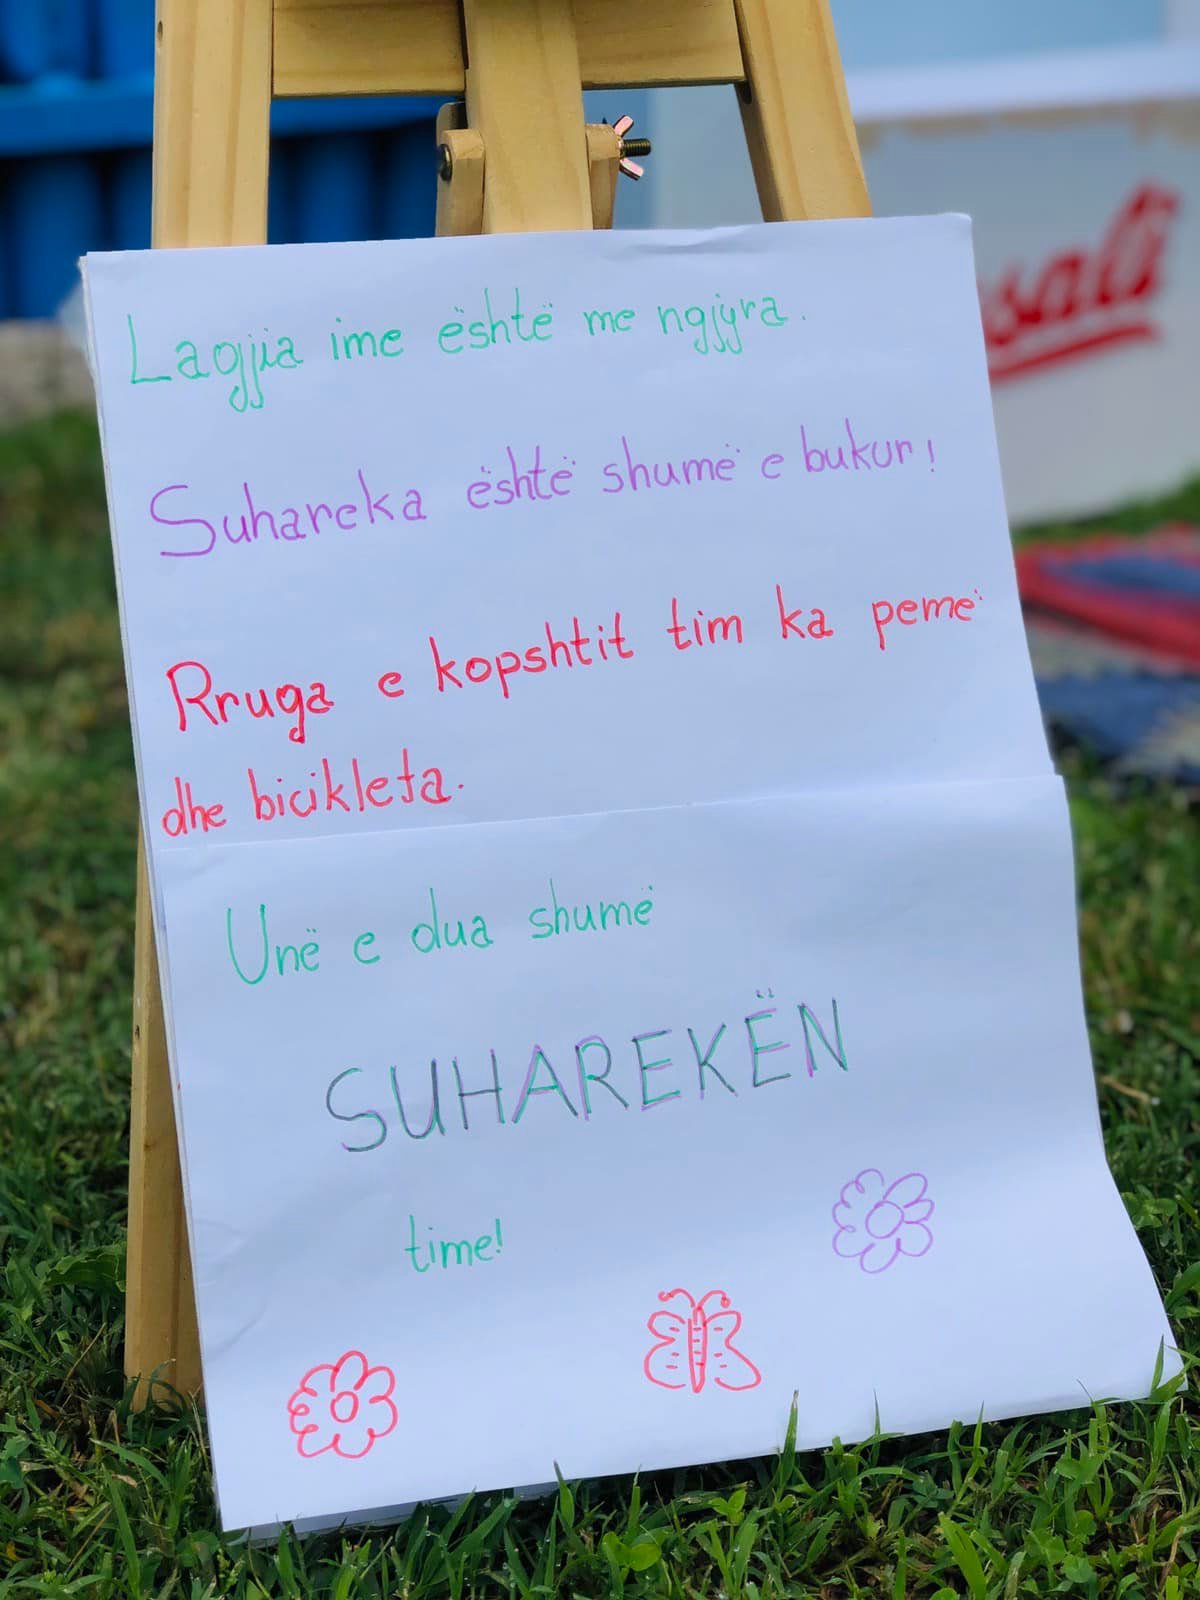 Lagjjia ime është me ngjyra.
Suhareka është shumë e bukur!
Rruga e kopshtit tim ka pemë
dhe bicikleta.
Unë e dua shumë
SUHAREKËN
time!